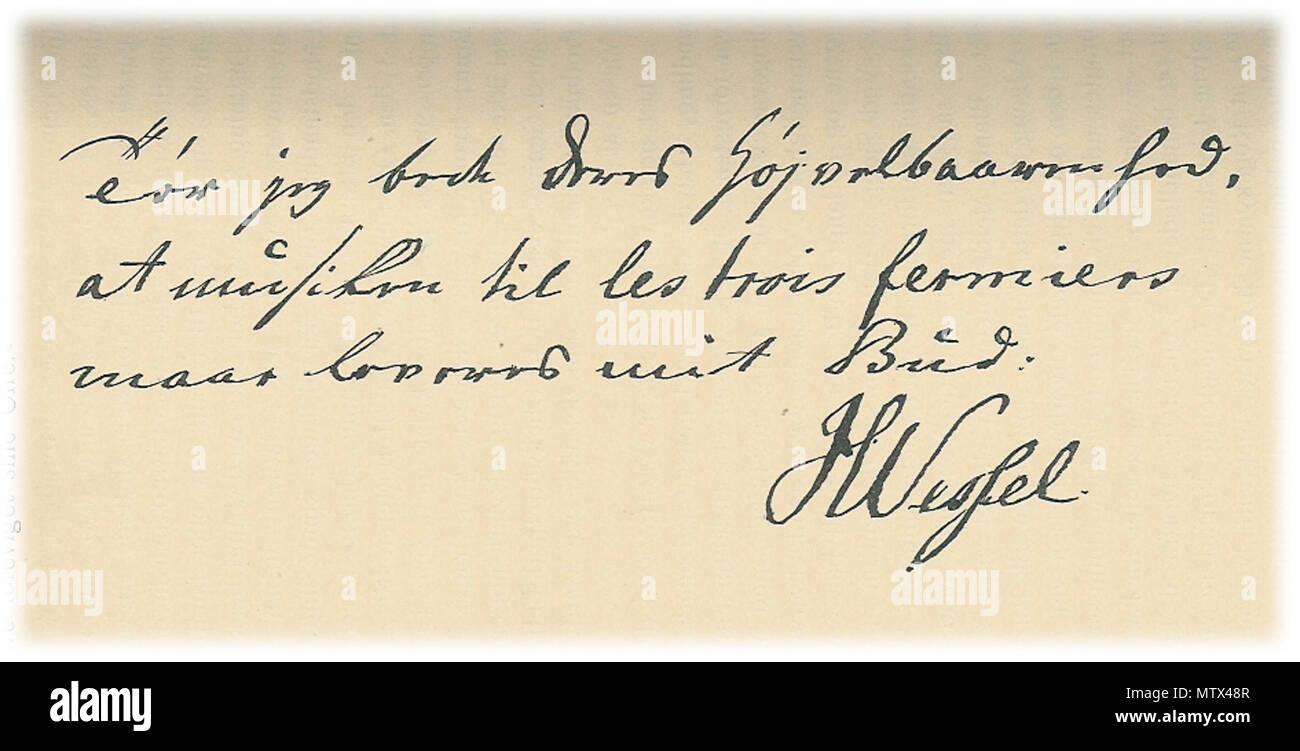 Tør jeg bede Deres Højvelbaarenhed,
at musiken til les trois fermiers
maae leveres mit Bud:
JHWessel.
a alamy stock photo
alamy
Image ID: MTX48R
www.alamy.com